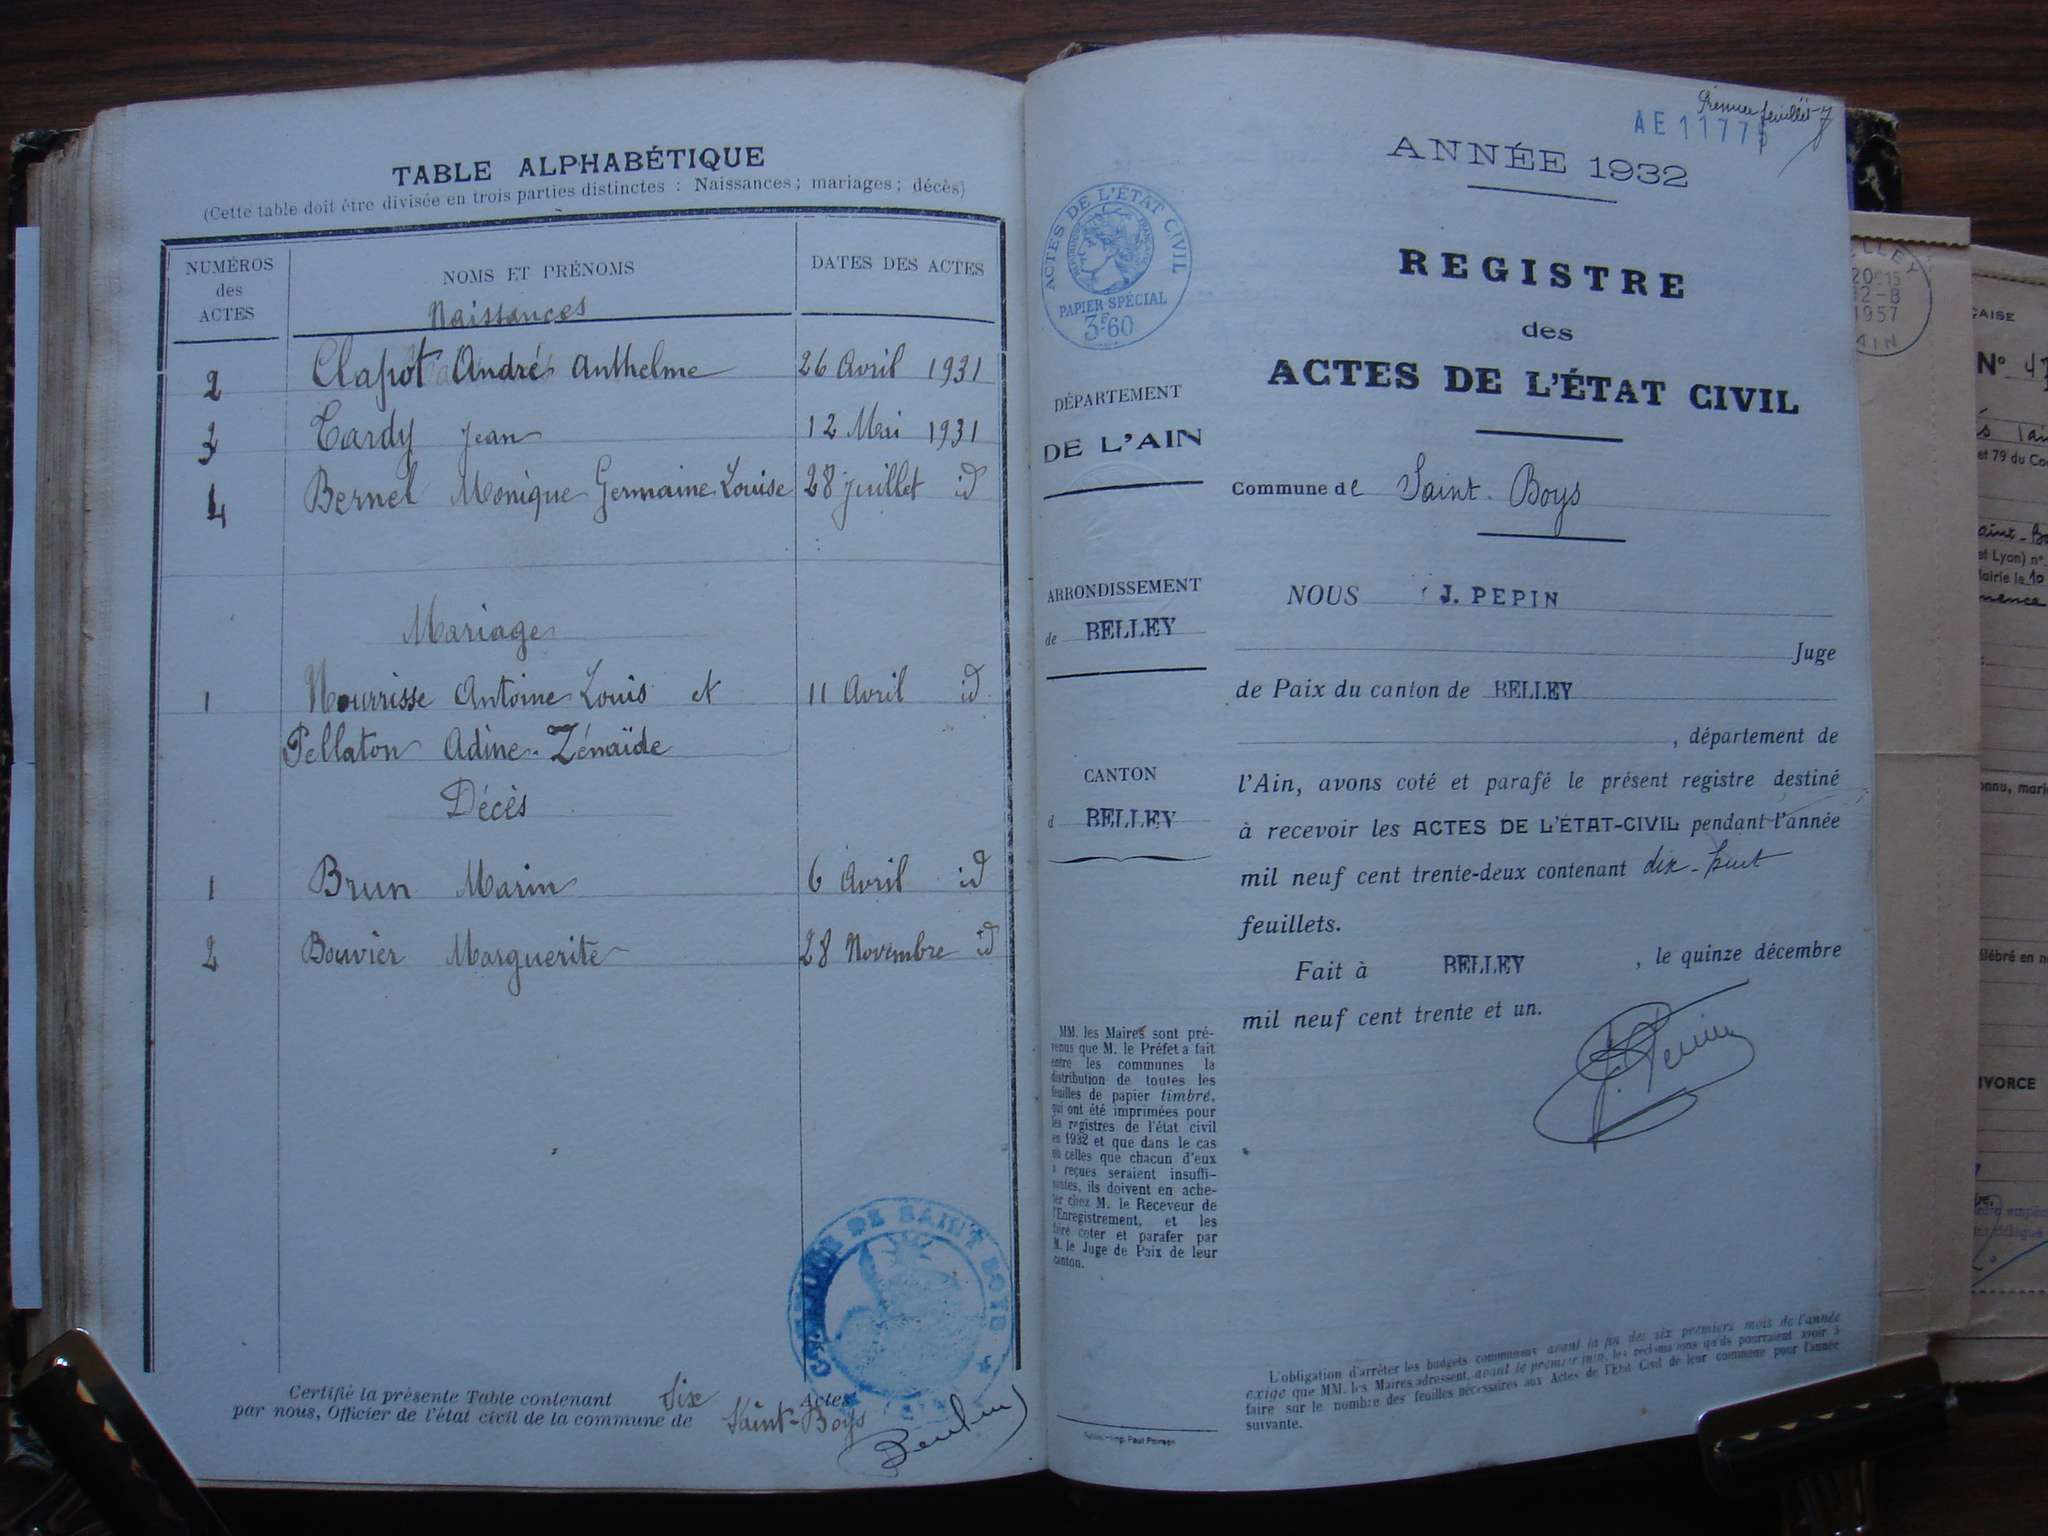 TABLE ALPHABÉTIQUE
(Cette table doit être divisée en trois parties distinctes : Naissances ; mariages ; décès)
NUMÉROS des ACTES NOMS ET PRÉNOMS DATES DES ACTES
Naissances
2 Clapot André Anthelme 26 Avril 1931
3 Tardy Jean 12 Mai 1931
4 Bernel Monique Germaine Louise 28 juillet id
Mariage
1 Nourrisse Antoine Louis et 11 Avril id
Pellaton Adine Zénaïde
Décès
1 Brun Marin 6 Avril id
2 Bouvier Marguerite 28 Novembre id
COMMUNE DE SAINT BOYS
Certifié la présente Table contenant Six Actes
par nous, Officier de l'état civil de la commune de Saint-Boys
Premier feuillet
AE 11775
ANNÉE 1932
ACTES DE L'ÉTAT CIVIL
PAPIER SPÉCIAL
3F60
REGISTRE
des
ACTES DE L'ÉTAT CIVIL
DÉPARTEMENT
DE L'AIN
Commune de Saint-Boys
ARRONDISSEMENT
de BELLEY
NOUS J. PEPIN
Juge
de Paix du canton de BELLEY
, département de
CANTON
d BELLEY
l'Ain, avons coté et parafé le présent registre destiné
à recevoir les ACTES DE L'ÉTAT-CIVIL pendant l'année
mil neuf cent trente-deux contenant dix-huit
feuillets.
Fait à BELLEY , le quinze décembre
mil neuf cent trente et un.
J. Pepin
MM. les Maires sont pré-
venus que M. le Préfet a fait
entre les communes la
distribution de toutes les
feuilles de papier timbré,
qui ont été imprimées pour
les registres de l'état civil
en 1932 et que dans le cas
où celles que chacun d'eux
a reçues seraient insuffi-
santes, ils doivent en ache-
ter chez M. le Receveur de
l'Enregistrement, et les
faire coter et parafer par
M. le Juge de Paix de leur
canton.
L'obligation d'arrêter les budgets communaux avant la fin des six premiers mois de l'année
exige que MM. les Maires adressent, avant le premier juin, les réclamations qu'ils pourraient avoir à
faire sur le nombre des feuilles nécessaires aux Actes de l'Etat Civil de leur commune pour l'année
suivante.
Imp. Paul
1957
N° 47
et 79 du
et Lyon) n°
Mairie le 10
célébré en
DIVORCE